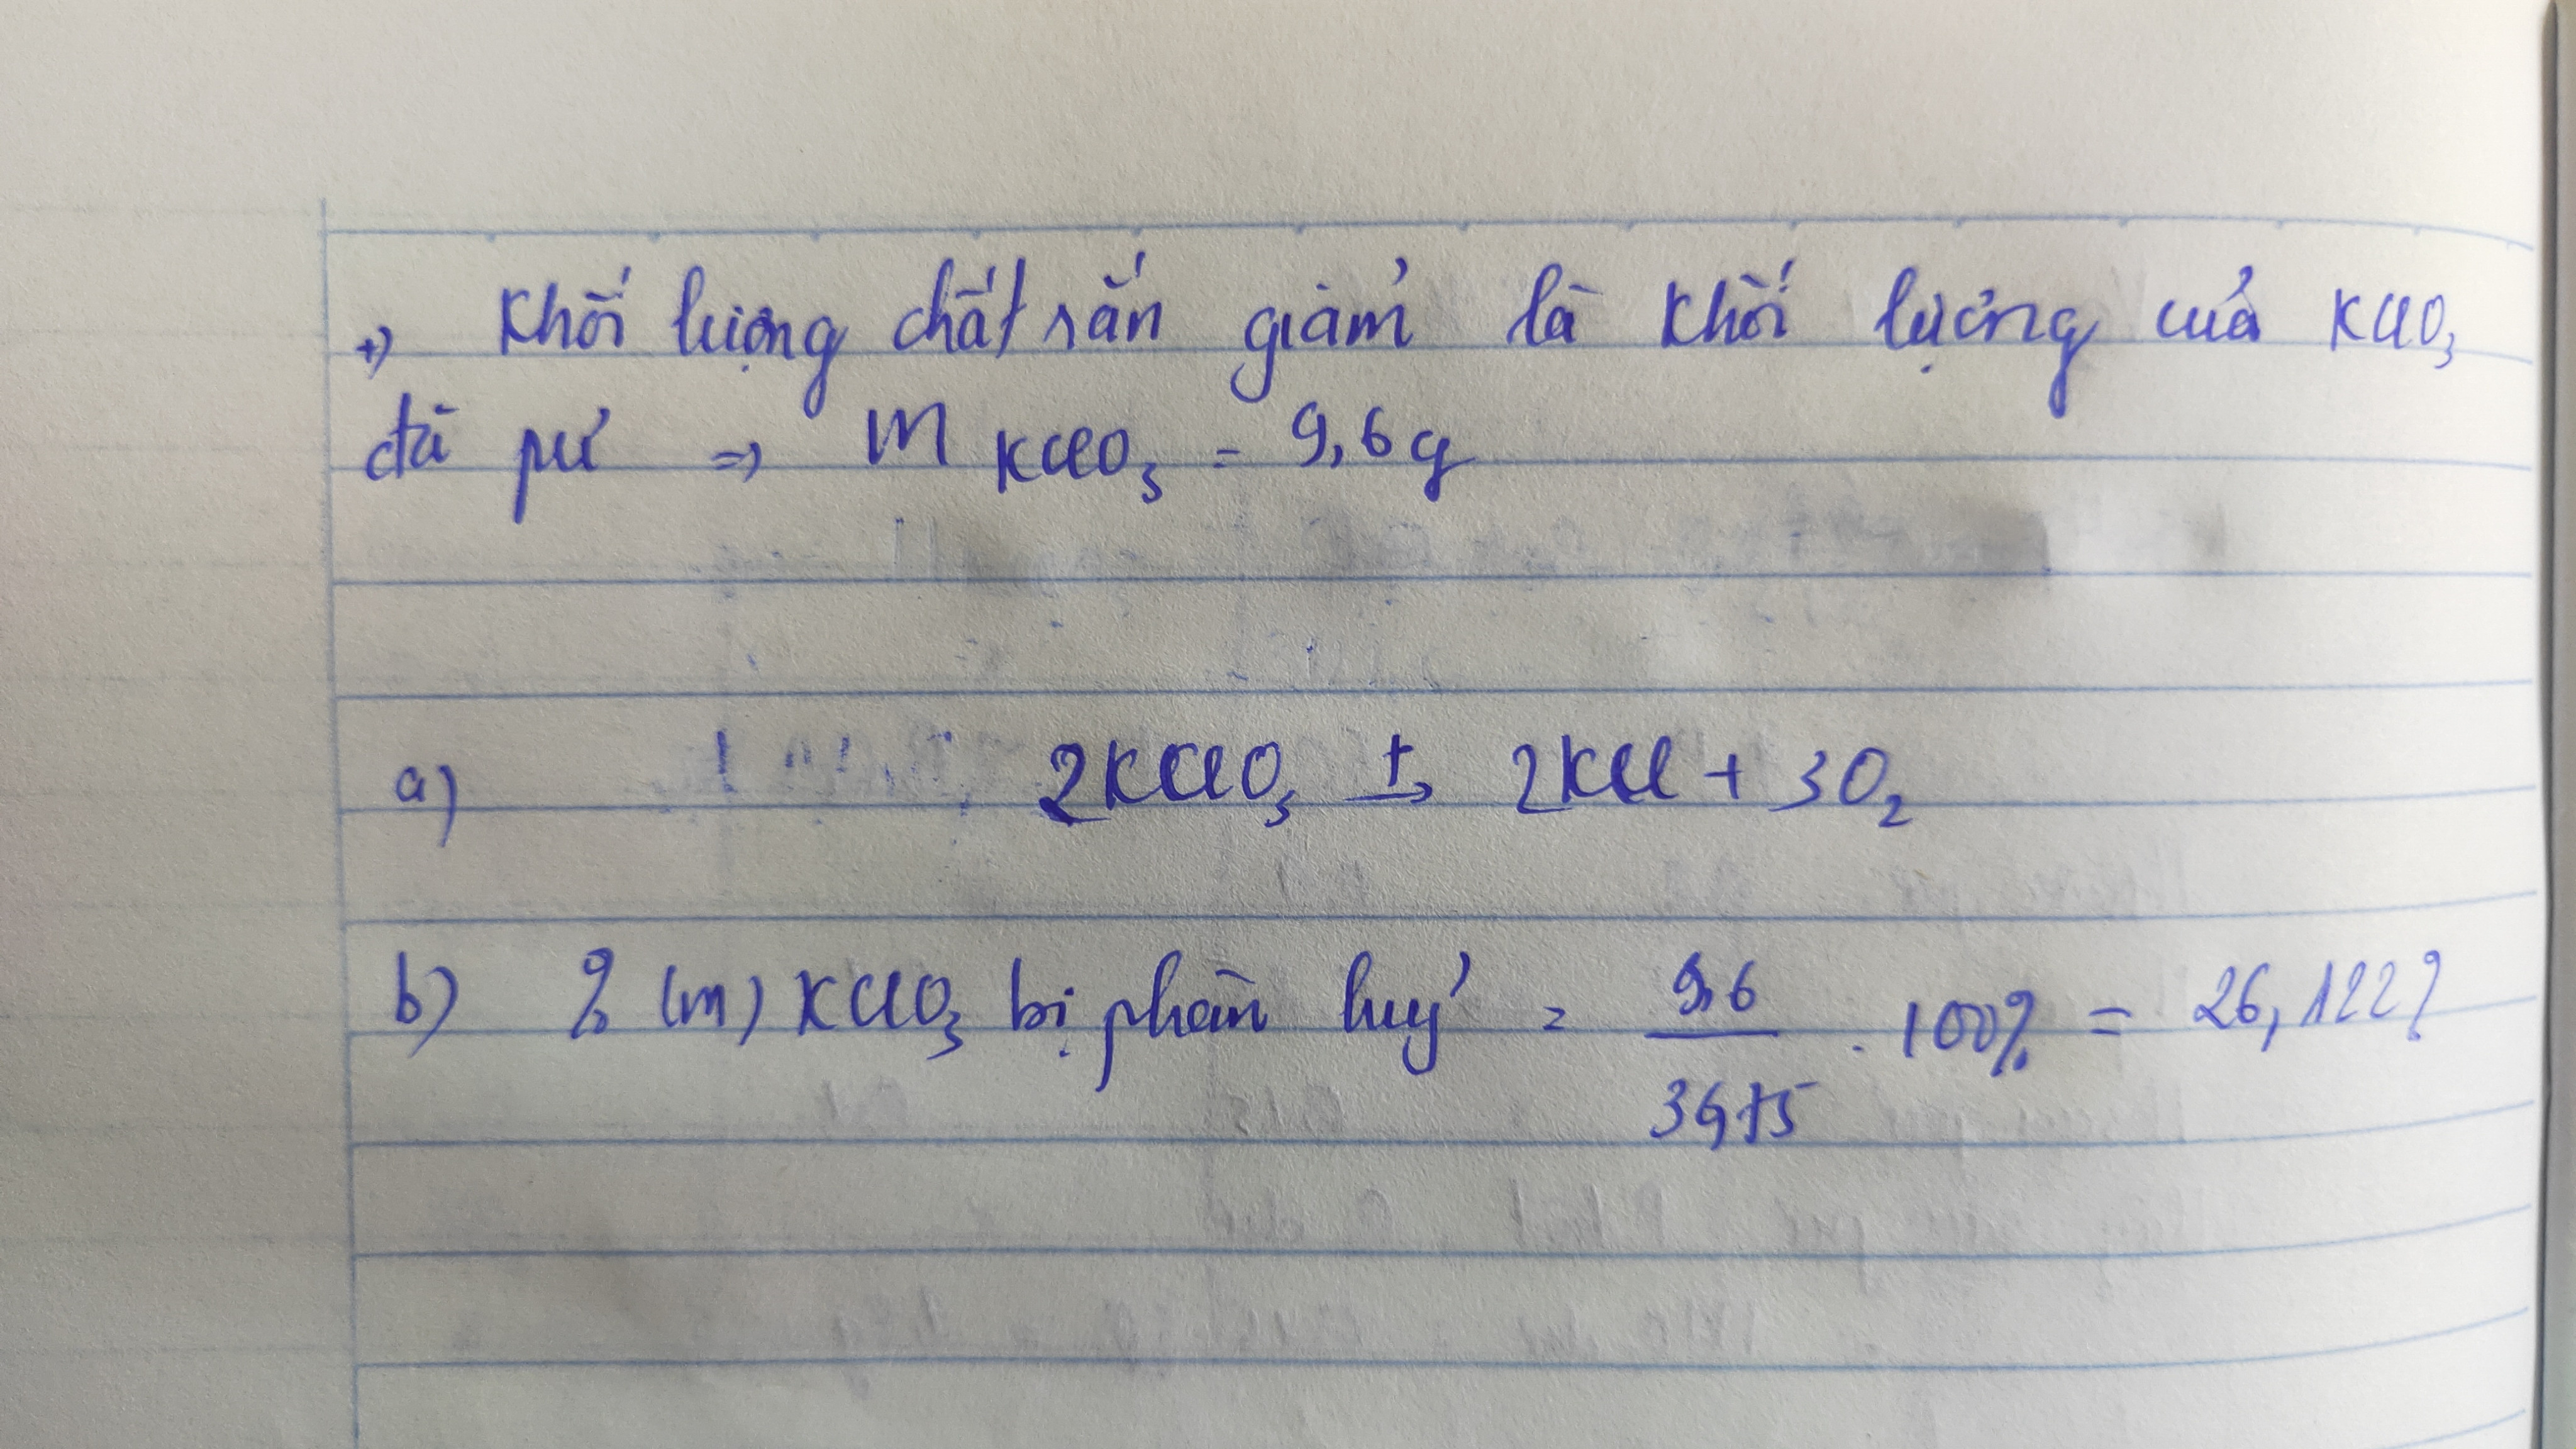 +) Khối lượng chất rắn giảm là khối lượng của KClO3
đã pư => m KClO3 = 9,6g
a) 2KClO3 t→ 2KCl + 3O2
b) % (m) KClO3 bị phân huỷ = 9,6 / 36,75 . 100% = 26,122%